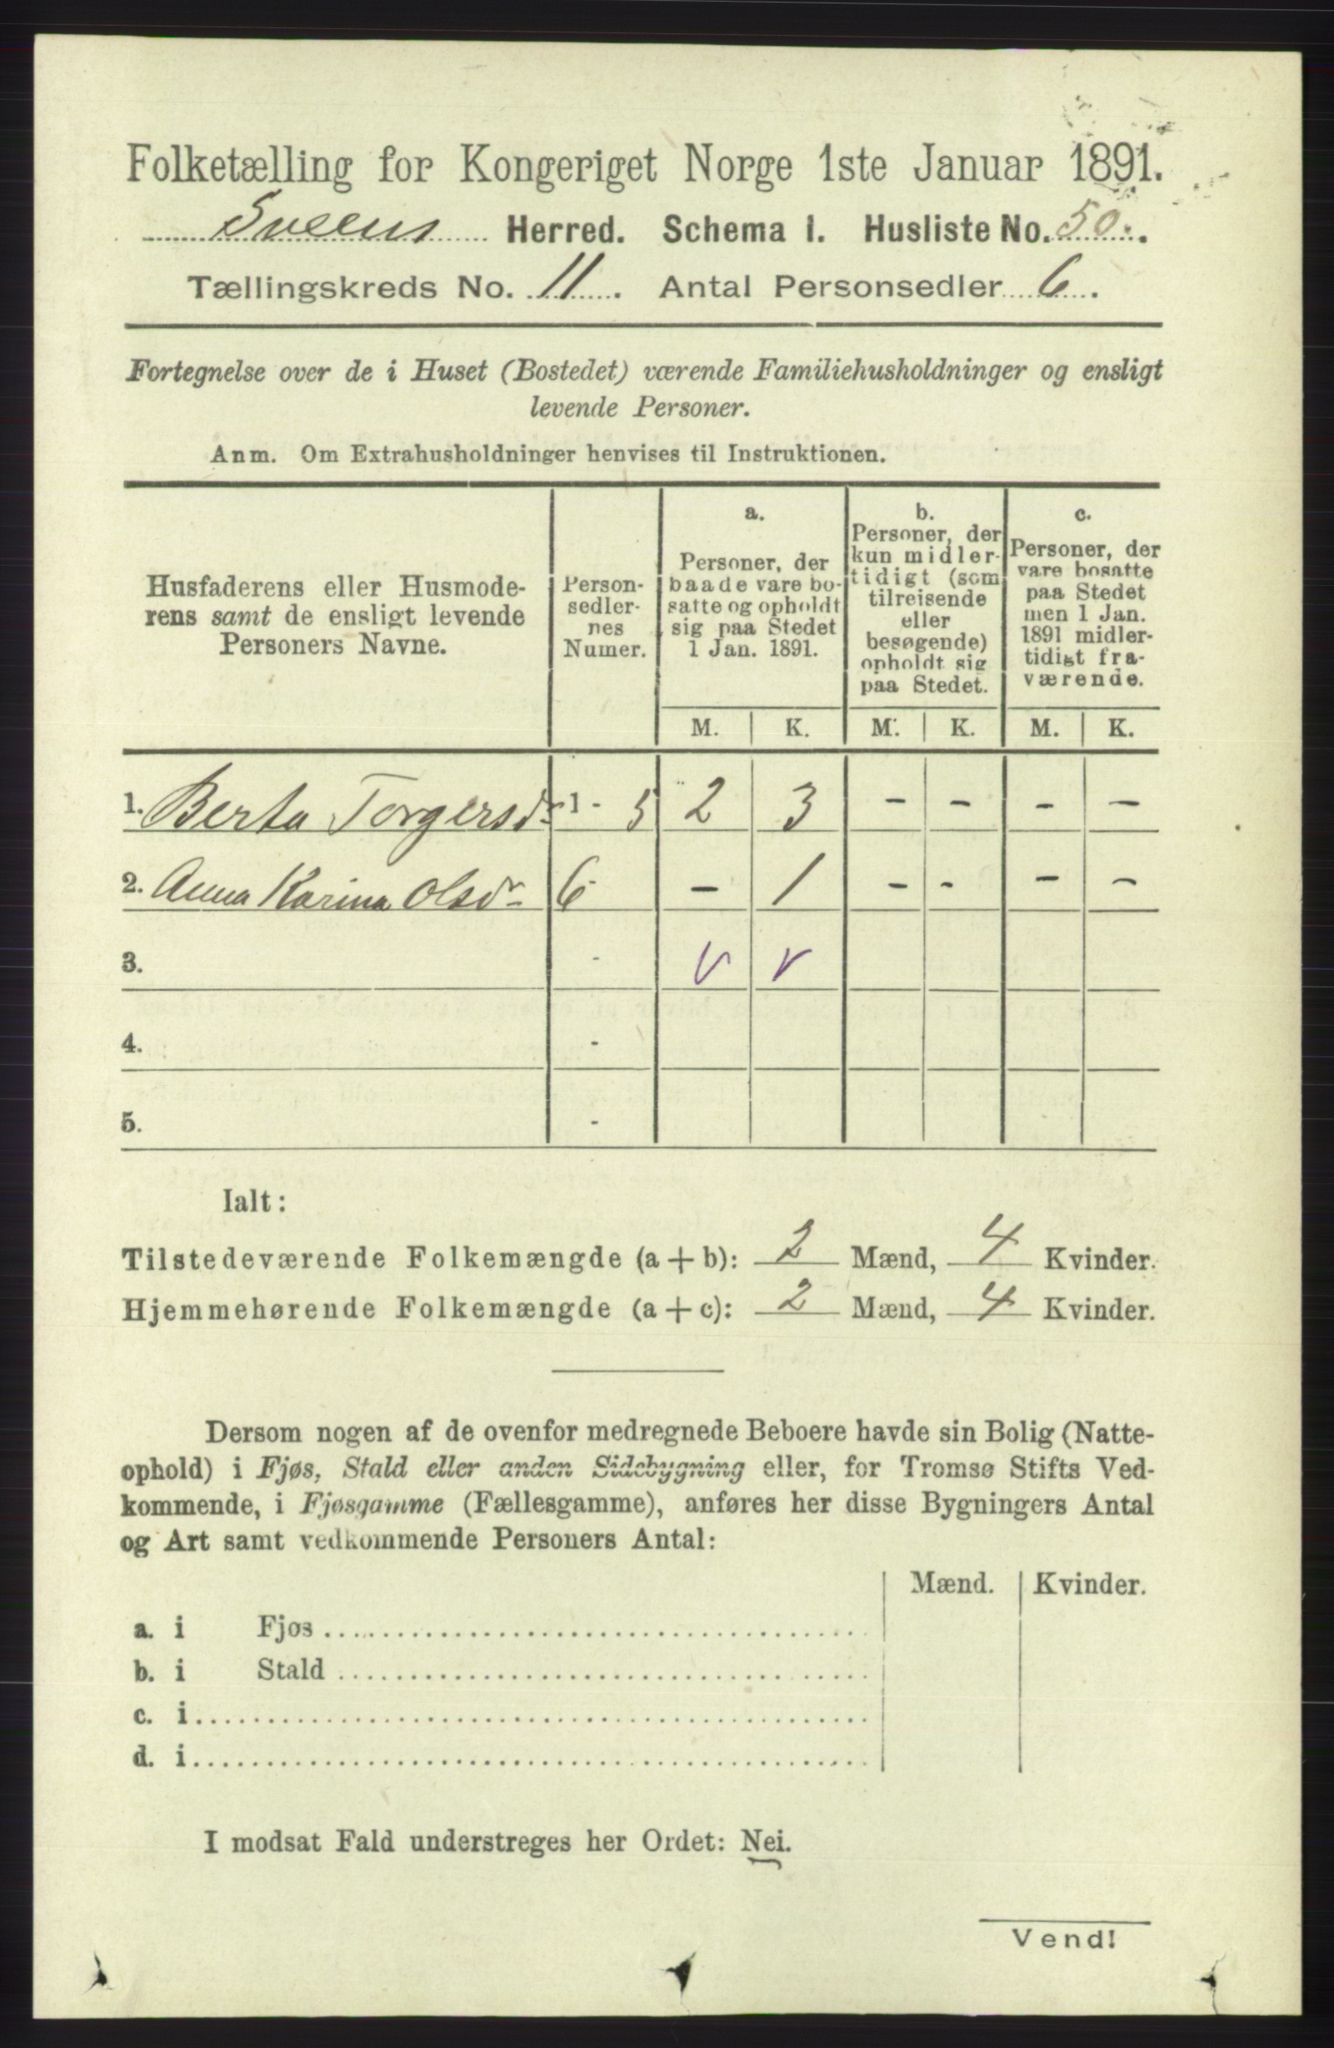 Folketælling for Kongeriget Norge 1ste Januar 1891.
Sveens Herred. Schema I. Husliste No. 50.
Tællingskreds No. 11. Antal Personsedler 6.
Fortegnelse over de i Huset (Bostedet) værende Familiehusholdninger og ensligt
levende Personer.
Anm. Om Extrahusholdninger henvises til Instruktionen.
Husfaderens eller Husmode-
rens samt de ensligt levende
Personers Navne.
Person-
sedler-
nes
Numer.
a.
Personer, der
baade vare bo-
satte og opholdt
sig paa Stedet
1 Jan. 1891.
b.
Personer, der
kun midler-
tidigt (som
tilreisende
eller
besøgende)
opholdt sig
paa Stedet.
c.
Personer, der
vare bosatte
paa Stedet
men 1 Jan.
1891 midler-
tidigt fra-
værende.
M. K. M. K. M. K.
1. Berta Torgersdr 1 - 5 2 3 - - - -
2. Anna Karina Olsdr 6 - - 1 - - - -
3. -
4. -
5. -
Ialt:
Tilstedeværende Folkemængde (a + b): 2 Mænd, 4 Kvinder.
Hjemmehørende Folkemængde (a + c): 2 Mænd, 4 Kvinder.
Dersom nogen af de ovenfor medregnede Beboere havde sin Bolig (Natte-
ophold) i Fjøs, Stald eller anden Sidebygning eller, for Tromsø Stifts Ved-
kommende, i Fjøsgamme (Fællesgamme), anføres her disse Bygningers Antal
og Art samt vedkommende Personers Antal:
Mænd. Kvinder.
a. i Fjøs
b. i Stald
c. i
d. i
I modsat Fald understreges her Ordet: Nei.
Vend!